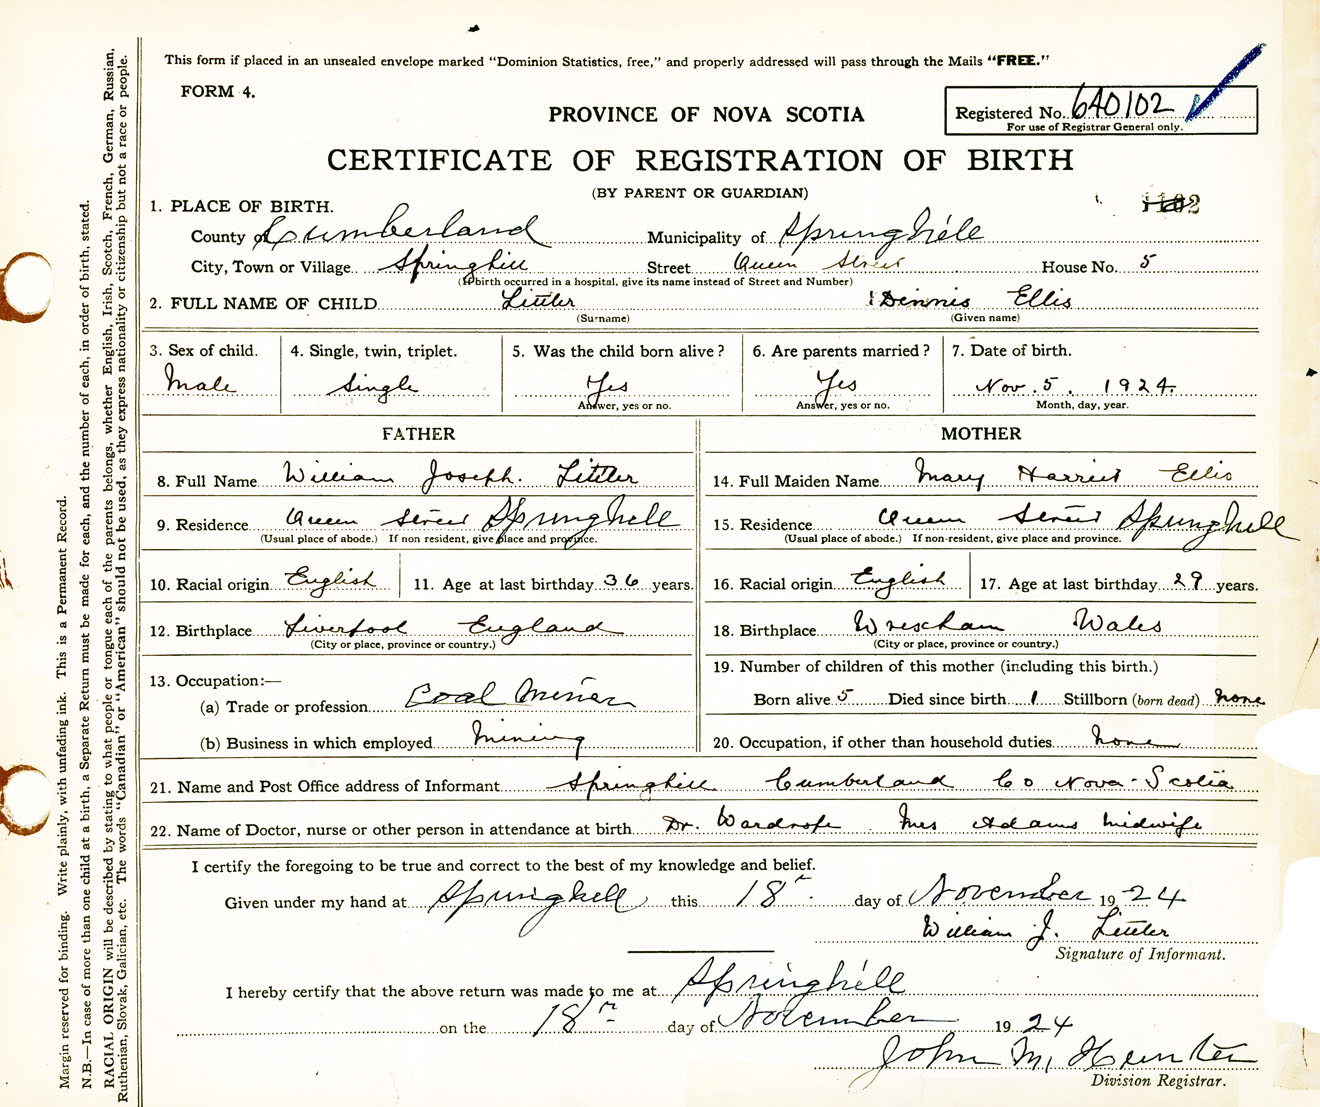 This form if placed in an unsealed envelope marked "Dominion Statistics, free," and properly addressed will pass through the Mails "FREE."
FORM 4.
PROVINCE OF NOVA SCOTIA
Registered No. 640102
For use of Registrar General only.
CERTIFICATE OF REGISTRATION OF BIRTH
(BY PARENT OR GUARDIAN)
1. PLACE OF BIRTH.
County of Cumberland Municipality of Springhill
City, Town or Village Springhill Street Queen Street House No. 5
(If birth occurred in a hospital, give its name instead of Street and Number)
2. FULL NAME OF CHILD Littler Dennis Ellis
(Surname) (Given name)
3. Sex of child. 4. Single, twin, triplet. 5. Was the child born alive? 6. Are parents married? 7. Date of birth.
Male Single Yes Yes Nov. 5. 1924.
Answer, yes or no. Answer, yes or no. Month, day, year.
FATHER MOTHER
8. Full Name William Joseph. Littler 14. Full Maiden Name Mary Harriet Ellis
9. Residence Queen Street Springhill 15. Residence Queen Street Springhill
(Usual place of abode.) If non resident, give place and province. (Usual place of abode.) If non-resident, give place and province.
10. Racial origin English 11. Age at last birthday 36 years. 16. Racial origin English 17. Age at last birthday 29 years.
12. Birthplace Liverpool England 18. Birthplace Wrexham Wales
(City or place, province or country.) (City or place, province or country.)
13. Occupation:— 19. Number of children of this mother (including this birth.)
(a) Trade or profession Coal Miner Born alive 5 Died since birth 1 Stillborn (born dead) none
(b) Business in which employed Mining 20. Occupation, if other than household duties none
21. Name and Post Office address of Informant Springhill Cumberland Co Nova-Scotia
22. Name of Doctor, nurse or other person in attendance at birth Dr. Wardrope Mrs Adams Midwife
I certify the foregoing to be true and correct to the best of my knowledge and belief.
Given under my hand at Springhill this 18 day of November 1924
William J. Littler
Signature of Informant.
I hereby certify that the above return was made to me at Springhill
on the 18 day of November 1924
John M. Hunter
Division Registrar.
Margin reserved for binding. Write plainly, with unfading ink. This is a Permanent Record.
N.B.—In case of more than one child at a birth, a Separate Return must be made for each, and the number of each, in order of birth, stated.
RACIAL ORIGIN will be described by stating to what people or tongue each of the parents belongs, whether English, Irish, Scotch, French, German, Russian,
Ruthenian, Slovak, Galician, etc. The words "Canadian" or "American" should not be used, as they express nationality or citizenship but not a race or people.